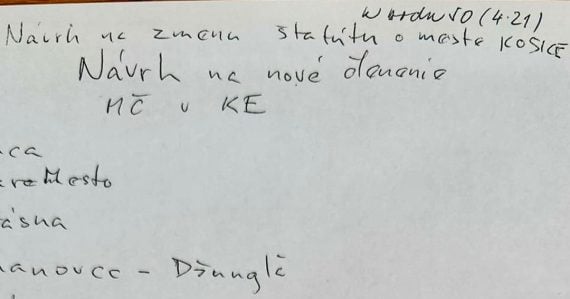 (4.21)
Návrh na zmenu štatútu o meste KOSICE
Návrh na nové členenie
MČ v KE
ca
Mesto
ásna
anovce - Džungľa